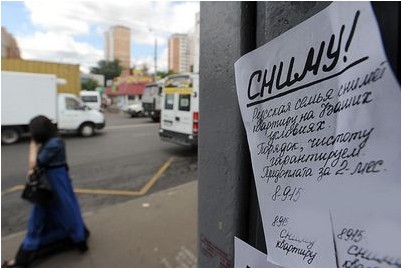 СНИМУ!
Русская семья снимет
квартиру на Ваших
условиях.
Порядок, чистоту
гарантируем.
Предоплата за 2 мес.
8-915
8915
Сниму
квартиру
8915
Сниму
кварти